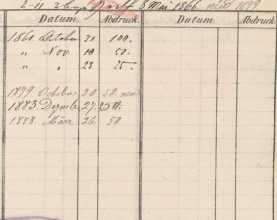 5 Mai 1866 1899
Datum. Abdruck Datum. Abdruck
1860 October 31 100.
" Nov. 10 50.
" " 23 25.
1879 October 30 50
1883 Dezmbr 27. 25
1888. März 26. 50